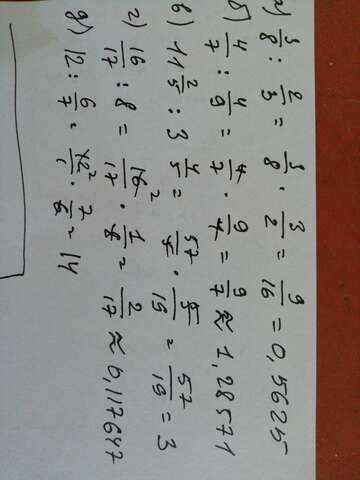 а) 3/8 : 2/3 = 3/8 · 3/2 = 9/16 = 0,5625
б) 4/7 : 4/9 = 4/7 · 9/4 = 9/7 ≈ 1,28571
в) 11 2/5 : 3 4/5 = 57/5 · 5/19 = 57/19 = 3
г) 16/17 : 8 = 16 2/17 · 1/8 = 2/17 ≈ 0,117647
д) 12 : 6/7 = 12 2/1 · 7/6 = 14